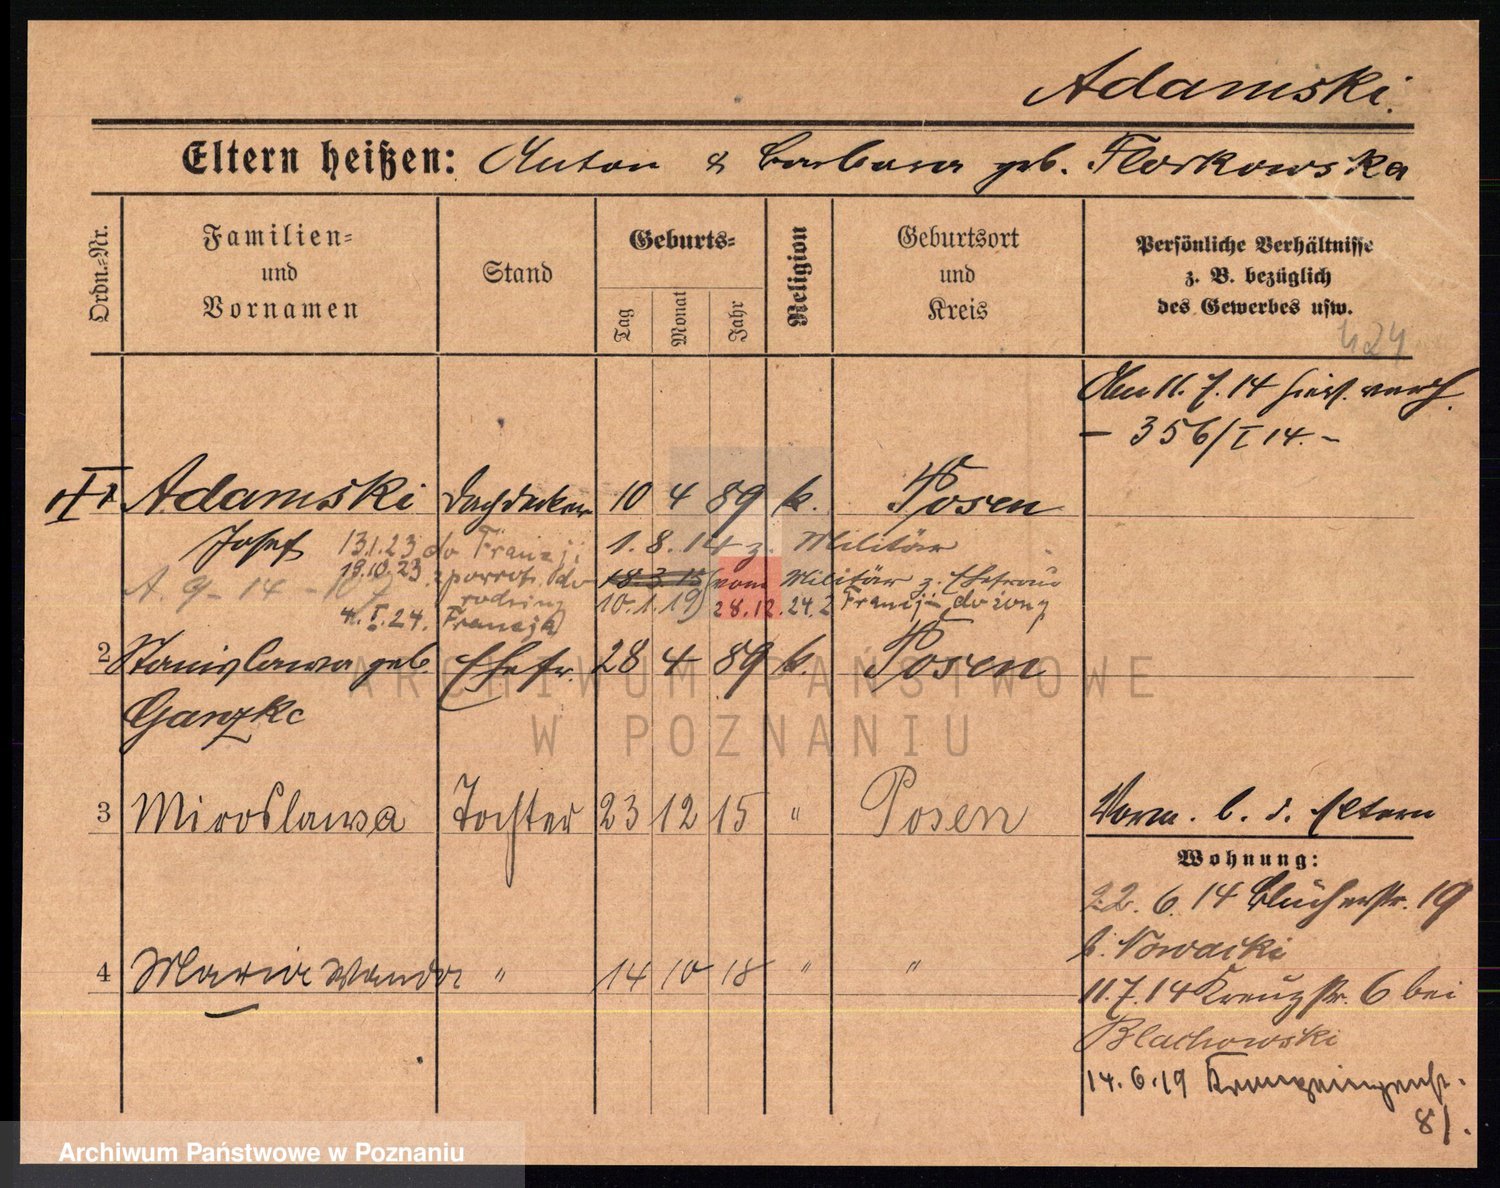 Adamski.
Eltern heißen: Anton & Barbara geb. Florkowska
Ordn.=Nr.
Familien=
und
Vornamen
Stand
Geburts=
Tag
Monat
Jahr
Religion
Geburtsort
und
Kreis
Persönliche Verhältnisse
z. B. bezüglich
des Gewerbes usw.
Am 11.7.14 hier verh.
- 356/I 14. -
Adamski Dachdecker 10 4 89 k. Posen
Josef 13.1.23 do Francji 1.8.14 z. Militär
19.10.23 z powrot. do 18.3.15 (vom Militär z. Ehefrau
A. 9-14-107 rodziny 10.1.19) 28.12.24 z Francji do żony
4.I.24. Francja)
2 Stanislawa geb. Ehefr. 28 4 89 k. Posen
Ganzke
3 Miroslawa Tochter 23 12 15 " Posen
Vorm. b. d. Eltern
Wohnung:
22.6.14 Blücherstr. 19
b. Nowacki
4 Maria Wanda " 14 10 18 " "
11.7.14 Kreuzstr. 6 bei
Blachowski
14.6.19
81.
ARCHIWUM PAŃSTWOWE
W POZNANIU
Archiwum Państwowe w Poznaniu